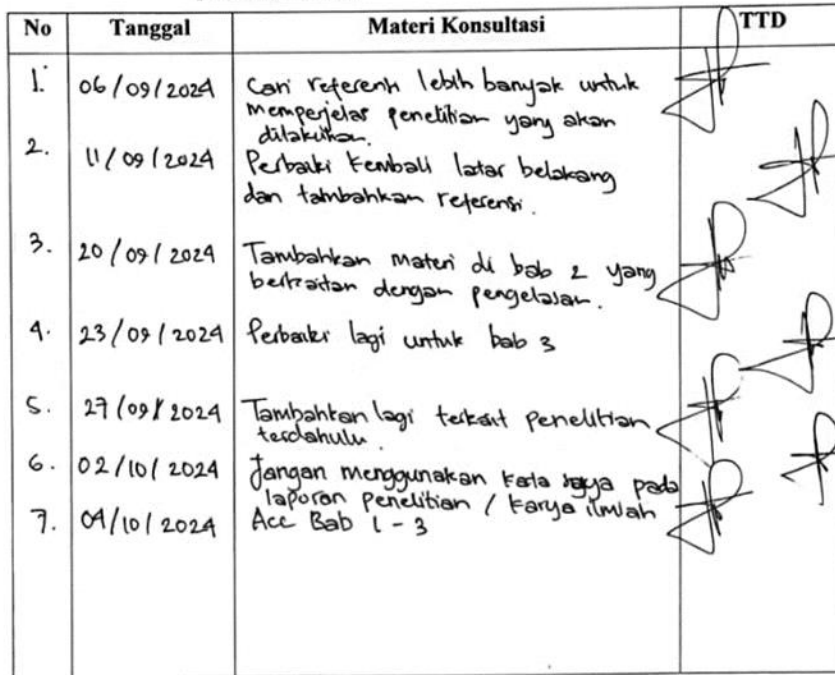 No Tanggal Materi Konsultasi TTD
1. 06/09/2024 Cari referensi lebih banyak untuk
memperjelas penelitian yang akan
dilakukan.
2. 11/09/2024 Perbaiki kembali latar belakang
dan tambahkan referensi.
3. 20/09/2024 Tambahkan materi di bab 2 yang
berkaitan dengan pengelasan.
4. 23/09/2024 Perbaiki lagi untuk bab 3
5. 27/09/2024 Tambahkan lagi terkait penelitian
terdahulu.
6. 02/10/2024 Jangan menggunakan kata saya pada
laporan penelitian / karya ilmiah
7. 04/10/2024 Acc Bab 1 - 3